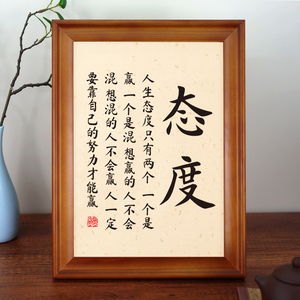 态度
人生态度只有两个一个是
赢一个是混想赢的人不会
混想混的人不会赢人一定
要靠自己的努力才能赢